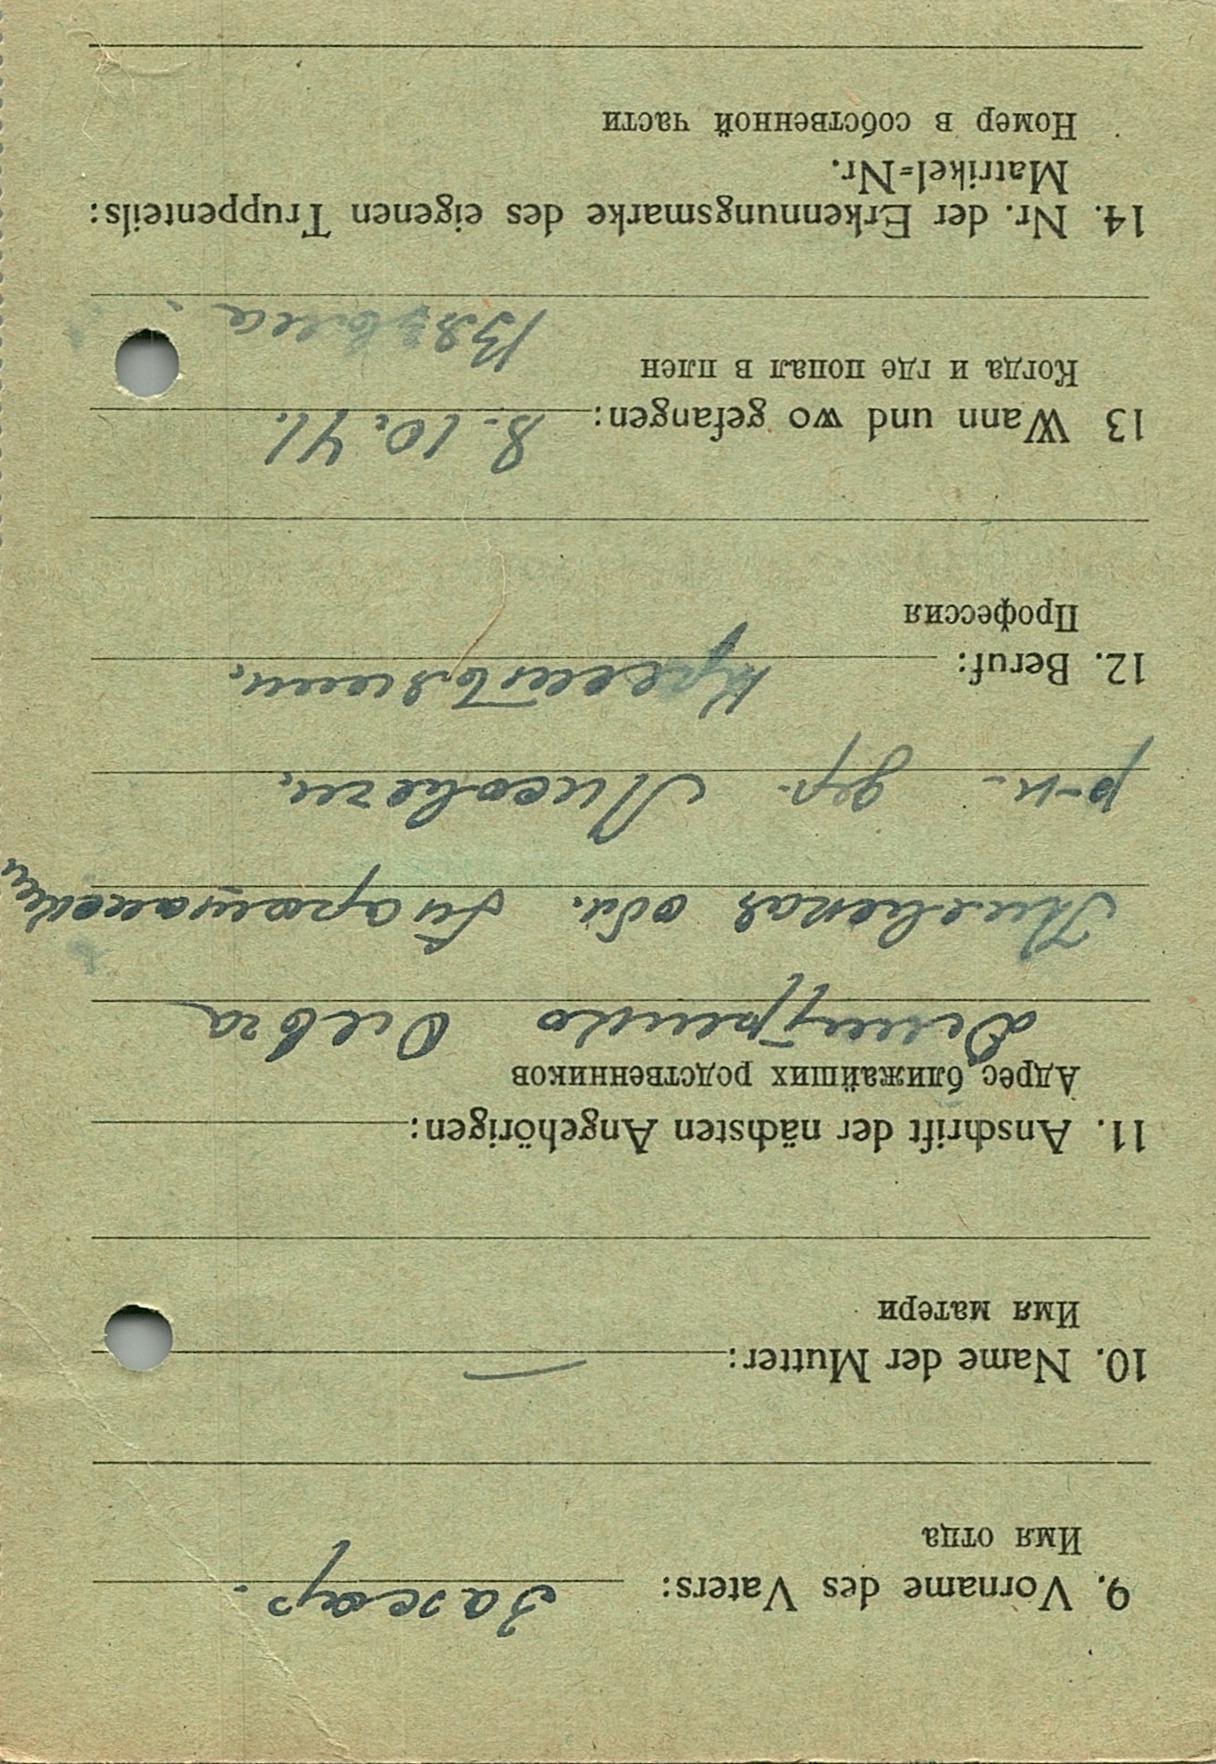 9. Vorname des Vaters: Захар.
Имя отца
10. Name der Mutter: —
Имя матери
11. Anschrift der nächsten Angehörigen:
Адрес ближайших родственников
Ольга
Киевская обл.
р-н. дер. Лисовечи.
12. Beruf: крестьянин.
Профессия
13 Wann und wo gefangen: 8.10.41.
Когда и где попал в плен
Вязьма.
14. Nr. der Erkennungsmarke des eigenen Truppenteils:
Matrikel=Nr.
Номер в собственной части